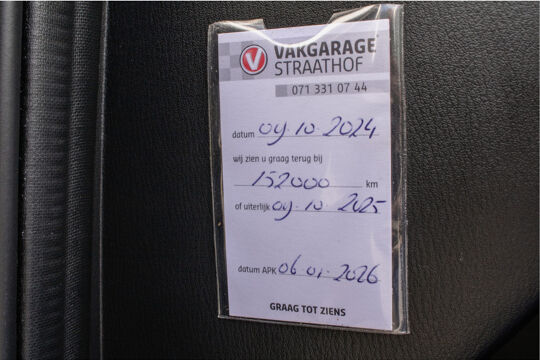 VAKGARAGE
STRAATHOF
071 331 07 44
datum 09-10-2024
wij zien u graag terug bij
152000 km
of uiterlijk 09-10 2025
datum APK 06-01-2026
GRAAG TOT ZIENS